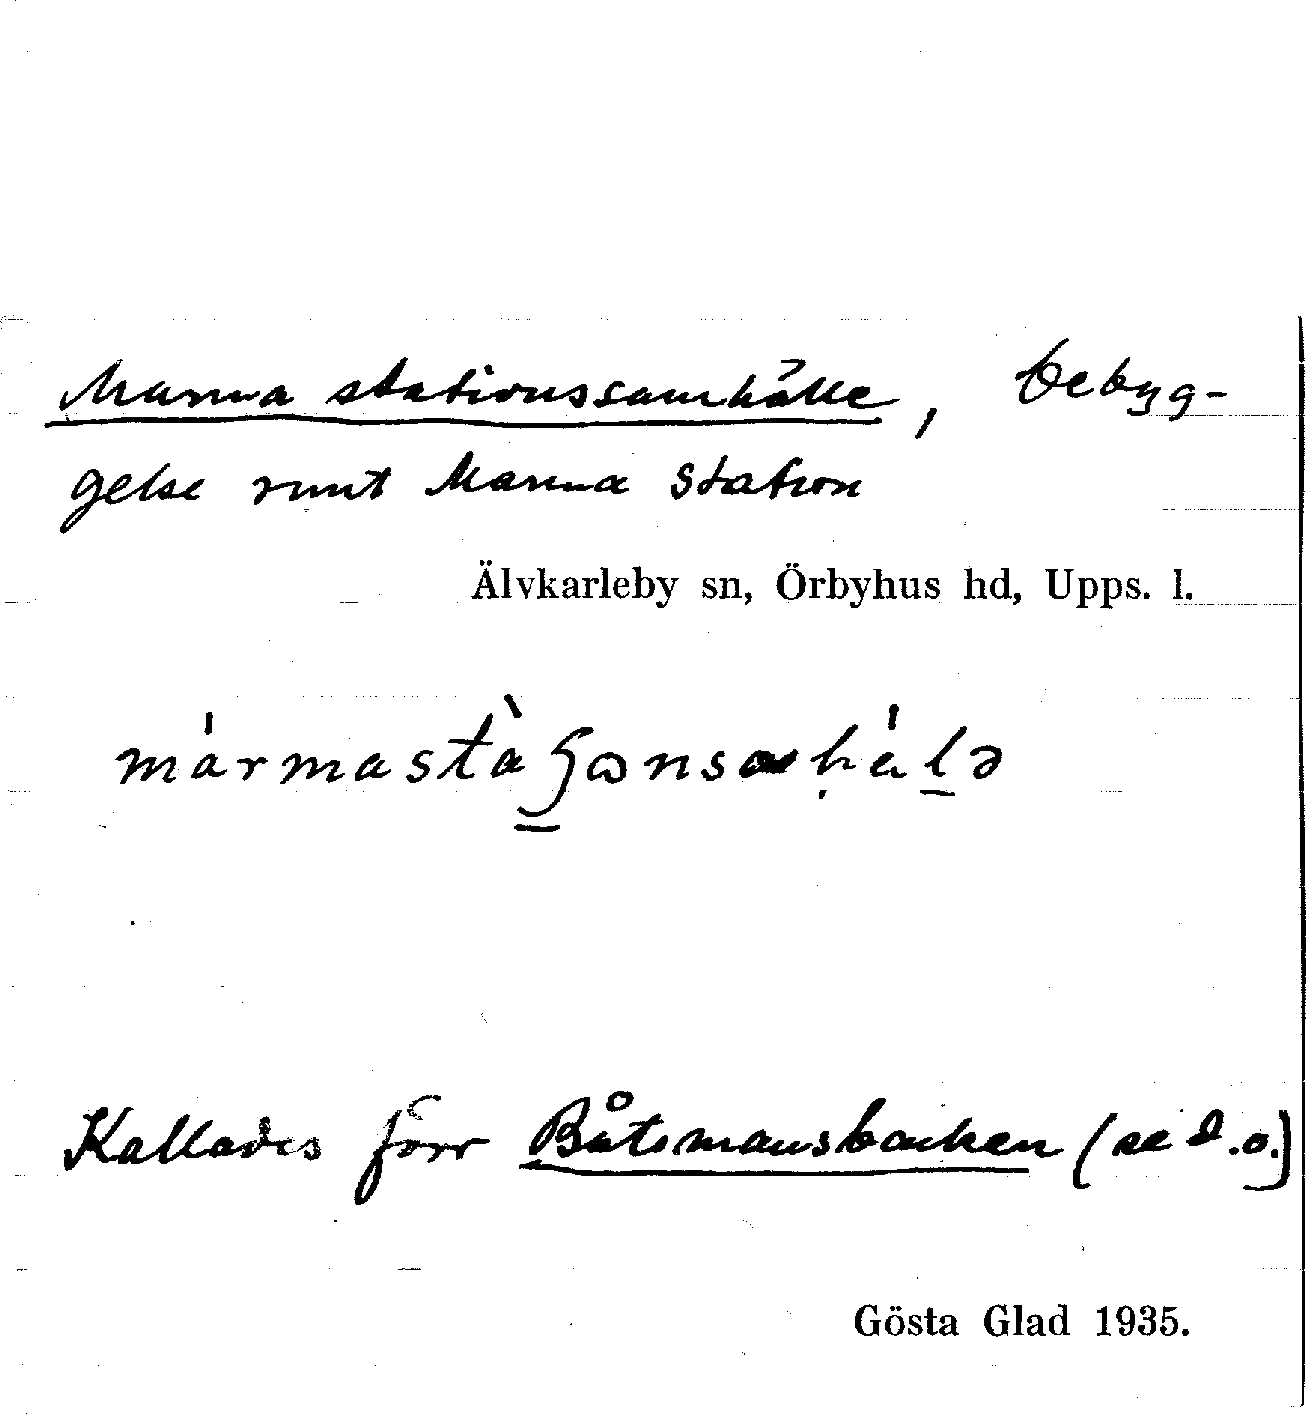 Marma stationssamhälle, bebyg-
gelse runt Marma station
Älvkarleby sn, Örbyhus hd, Upps. l.
Kallades förr Båtsmansbacken (se d.o.)
Gösta Glad 1935.